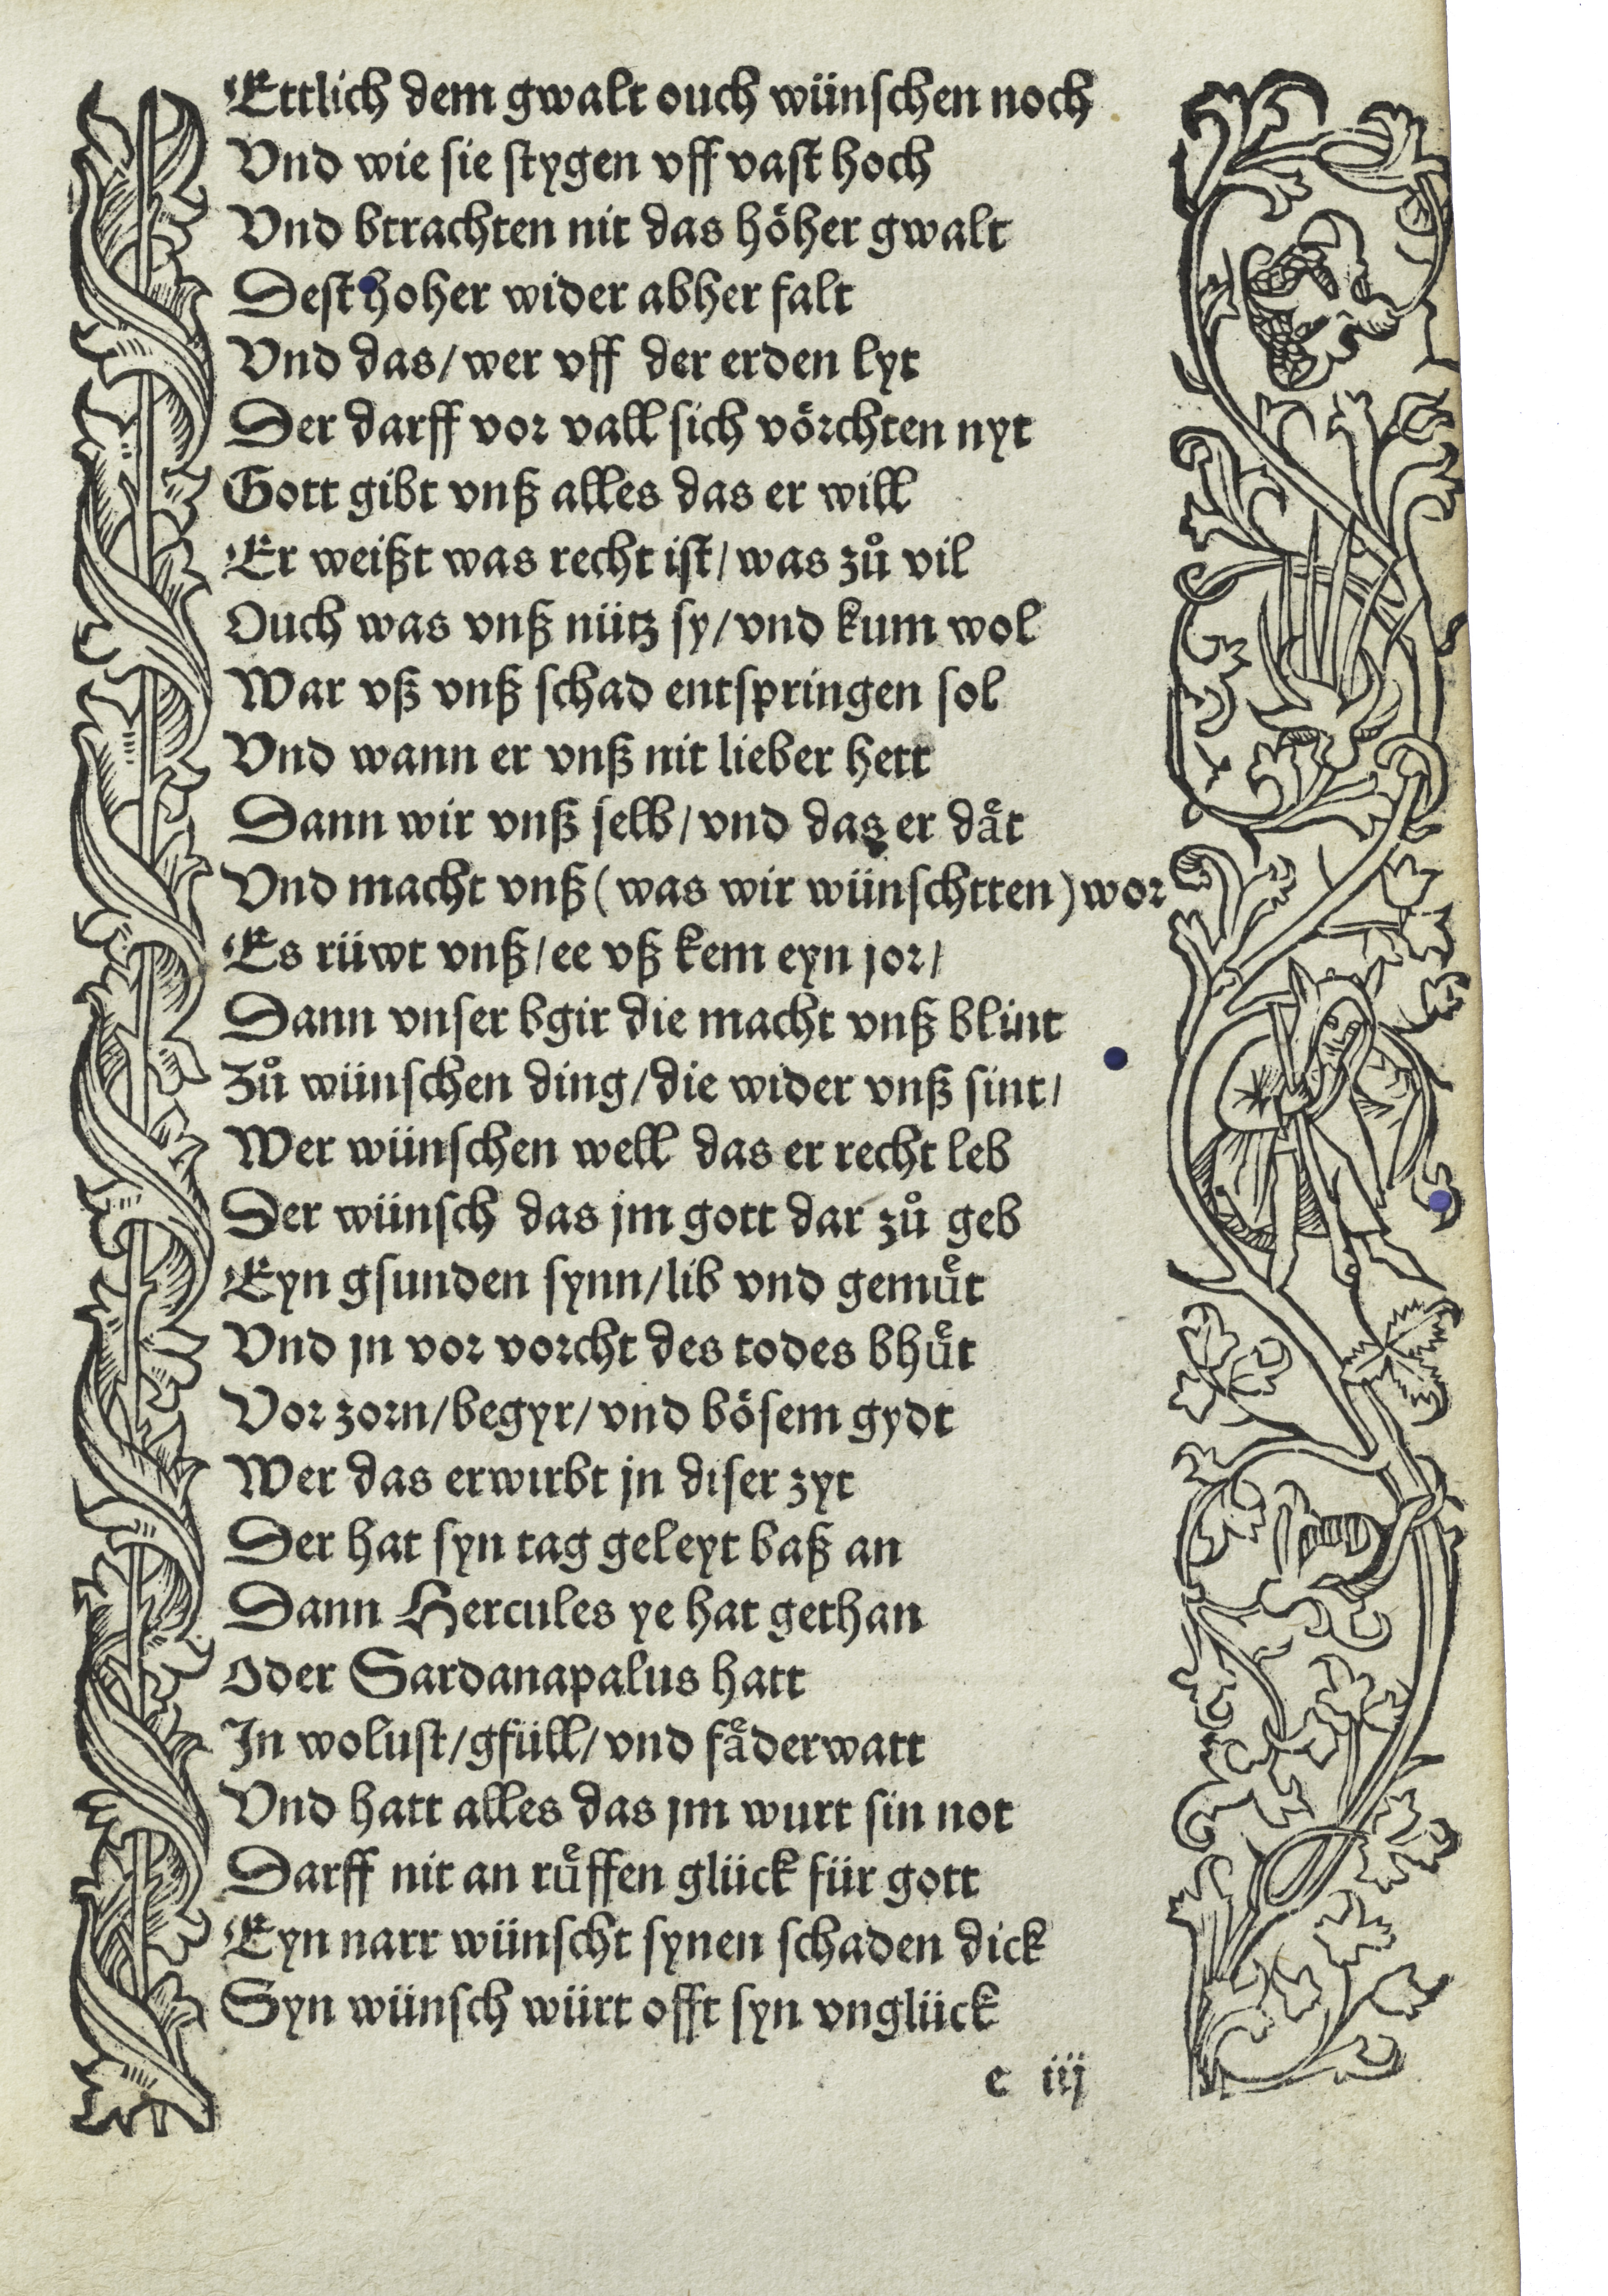 Ettlich dem gwalt ouch wünschen noch
Vnd wie sie stygen vff vast hoch
Vnd btrachten nit das höher gwalt
Dest hoher wider abher falt
Vnd das/wer vff der erden lyt
Der darff vor vall sich vörchten nyt
Gott gibt vnß alles das er will
Er weißt was recht ist/was zuͦ vil
Ouch was vnß nütz sy/vnd kum wol
War vß vnß schad entspringen sol
Vnd wann er vnß nit lieber hett
Dann wir vnß selb/vnd das er daͤt
Vnd macht vnß(was wir wünschtten)wor
Es rüwt vnß/ee vß kem eyn jor/
Dann vnser bgir die macht vnß blint
Zuͦ wünschen ding/die wider vnß sint/
Wer wünschen well das er recht leb
Der wünsch das jm gott dar zuͦ geb
Eyn gsunden synn/lib vnd gemuͤt
Vnd jn vor vorcht des todes bhuͤt
Vor zorn/begyr/vnd bösem gydt
Wer das erwirbt jn diser zyt
Der hat syn tag geleyt baß an
Dann Hercules ye hat gethan
Oder Sardanapalus hatt
In wolust/gfüll/vnd faͤderwatt
Vnd hatt alles das jm wurt sin not
Darff nit an ruͤffen glück für gott
Eyn narr wünscht synen schaden dick
Syn wünsch würt offt syn vnglück
c iij